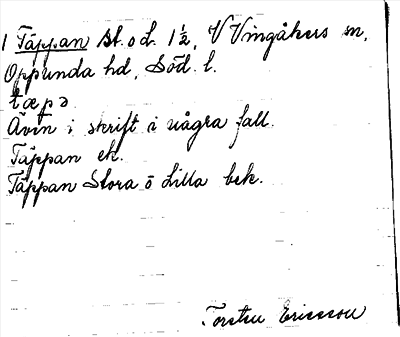 1 Täppan St. o. d. 1½, V Vingåkers sn,
Oppunda hd, Söd. l.
tæpə
Även i skrift i några fall.
Täppan ek.
Täppan Stora o Lilla bek.
Torsten Ericsson